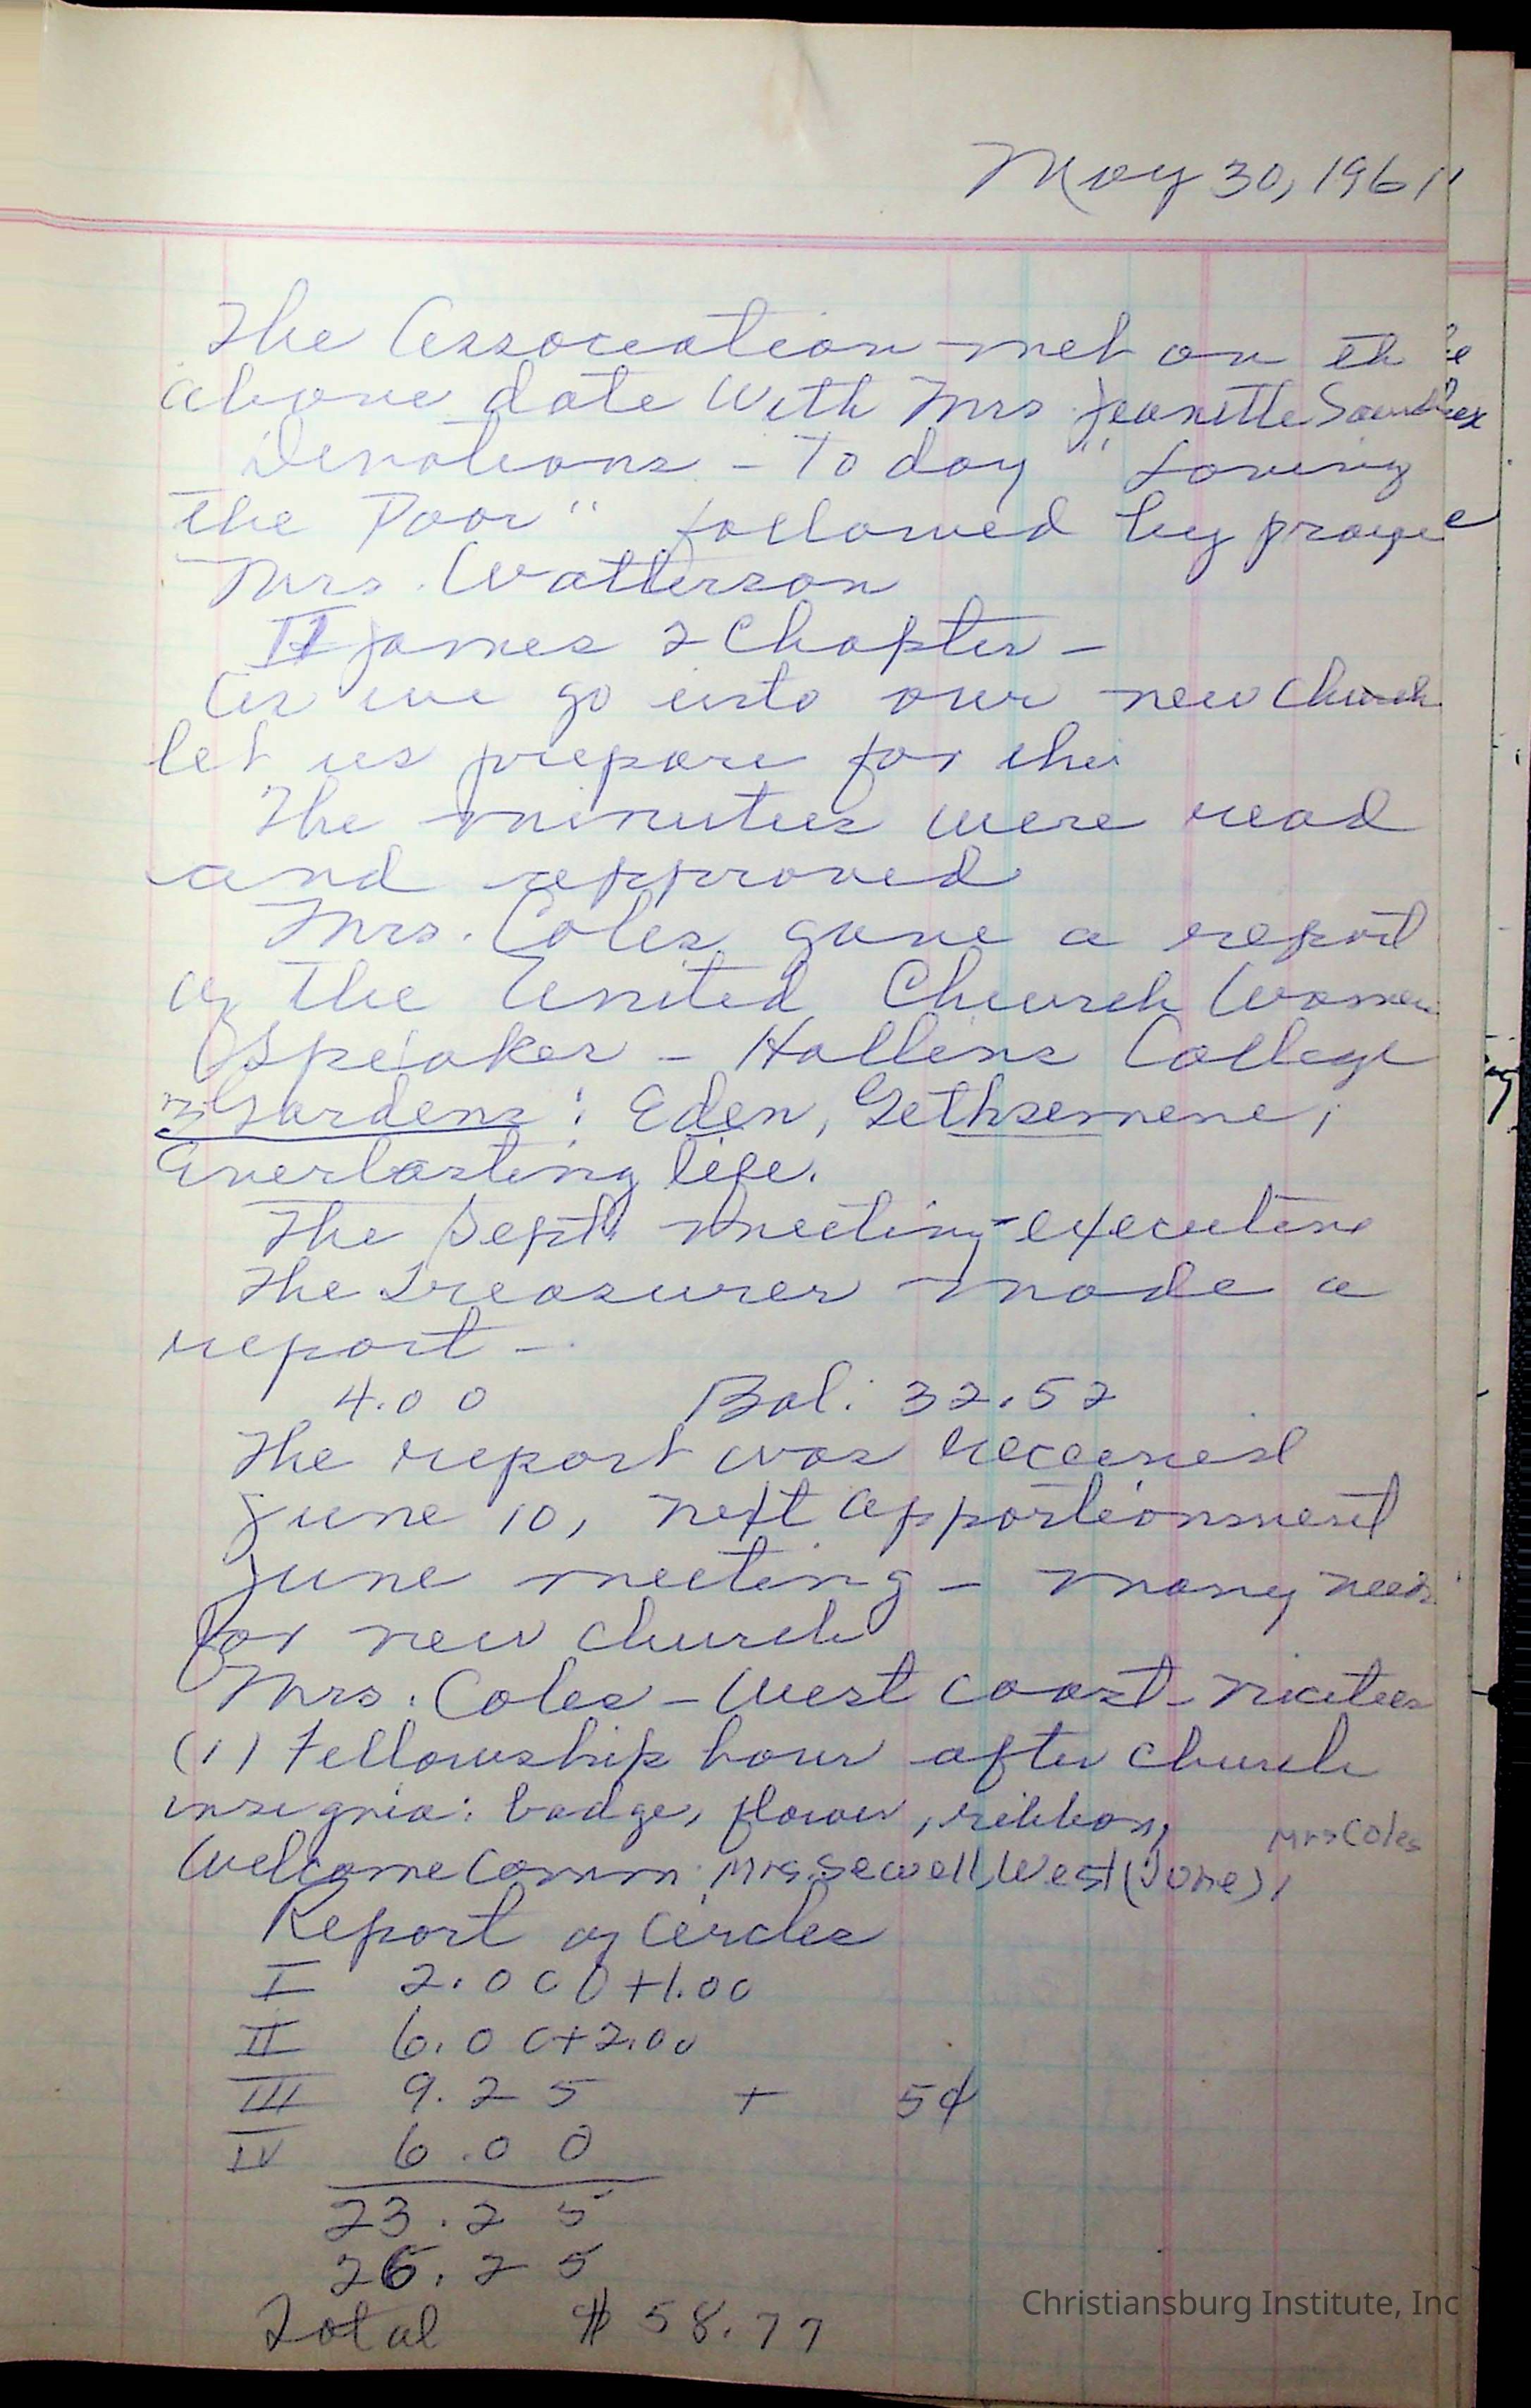 May 30, 1961
The Association met on the
above date with Mrs Jeanette
Devotions - To day "Loving
the Poor" followed by praye
Mrs. Watterson
II James 2 Chapter -
As we go into our new Church
let us prepare for
The minutes were read
and approved
Mrs. Coles gave a report
of the United Church Women
Speaker - Hollins College
3 Gardens: Eden, Gethsemene,
Everlasting life.
The Sept. meeting - executive
The treasurer made a
report -
4.00 Bal. 32.52
The report was received
June 10, next apportionment
June meeting - many needs
for new church
Mrs. Coles - West Coast -
(1) Fellowship hour after church
insignia: badge, flower, ribbon,
Mrs Coles
Welcome Comm. Mrs. Sewell, West (June),
Report of Circles
I 2.00 +1.00
II 6.00+2.00
III 9.25 + 5¢
IV 6.00
23.25
26.25
Total $58.77
Christiansburg Institute, Inc